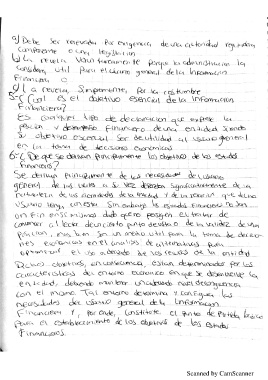 a) Debe ser revelada por exigencia de una autoridad reguladora
conforme a una legislación
b) La revela voluntariamente porque la administración la
considera útil para el usuario general de la Información
Financiera o
c) La revela, Simplemente, Por la costumbre
5-¿Cual es el objetivo esencial de la Información
Financiera?
Es cualquier tipo de declaración que exprese la
posición y desempeño Financiero de una entidad siendo
su objetivo esencial ser de utilidad al usuario general
en la toma de decisiones económicas
6-¿De que se derivan principalmente los objetivos de los estados
financieros?
Se derivan principalmente de las necesidades del usuario
general, de las cuales a su vez dependen significativamente de la
naturaleza de las actividades de la entidad y de la relación que dicho
usuario tenga con esta. Sin embargo los estados financieros no son
un fin en si mismos dado que no persiguen el tratar de
convencer al lector de un cierto punto de vista o de la validez de una
posición, mas bien son un medio útil para la toma de decisio-
nes económicas en el análisis de alternativas para
optimizar el uso adecuado de los recursos de la entidad
Dichos objetivos, en consecuencia, están determinados por las
características del entorno económico en que se desenvuelve la
entidad, debiendo mantener un adecuado nivel de congruencia
con el mismo. Tal entorno determina y configura las
necesidades del usuario general de la Información
Financiera y, por ende, constituye el punto de Partida básico
Para el establecimiento de los objetivos de los estados
Financieros.
Scanned by CamScanner